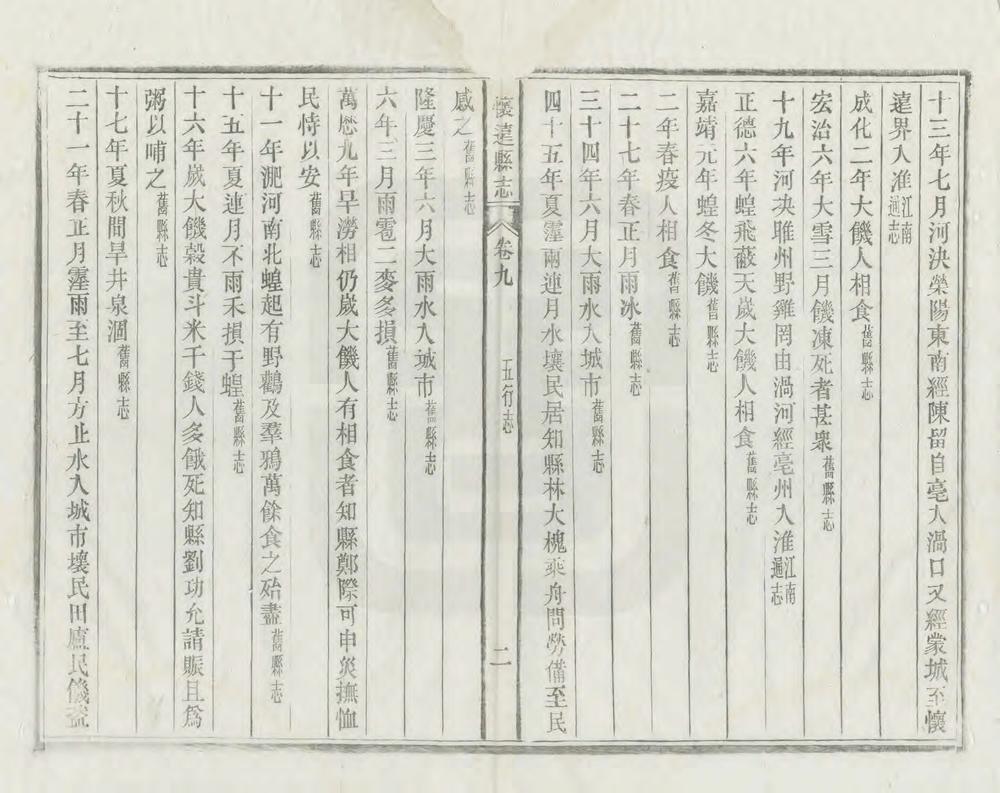 十三年七月河決滎陽東南經陳留自亳入渦口又經蒙城至懷
遠界入淮江南通志
成化二年大饑人相食舊縣志
宏治六年大雪三月饑凍死者甚衆舊縣志
十九年河決睢州野雞罔由渦河經亳州入淮江南通志
正德六年蝗飛蔽天歲大饑人相食舊縣志
嘉靖元年蝗冬大饑舊縣志
二年春疫人相食舊縣志
二十七年春正月雨冰舊縣志
三十四年六月大雨水入城市舊縣志
四十五年夏霪雨連月水壞民居知縣林大槐乘舟問勞備至民
懷遠縣志 卷九 五行志 二
感之舊縣志
隆慶三年六月大雨水入城市舊縣志
六年三月雨雹二麥多損舊縣志
萬懋九年旱澇相仍歲大饑人有相食者知縣鄭際可申災撫恤
民恃以安舊縣志
十一年淝河南北蝗起有野鸛及羣鴉萬餘食之殆盡舊縣志
十五年夏連月不雨禾損于蝗舊縣志
十六年歲大饑穀貴斗米千錢人多餓死知縣劉功允請賑且爲
粥以哺之舊縣志
十七年夏秋間旱井泉涸舊縣志
二十一年春正月霪雨至七月方止水入城市壞民田廬民饑盜